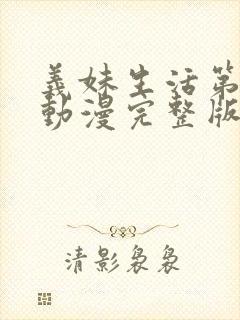 義妹生活第
動漫完整版
清影裊裊